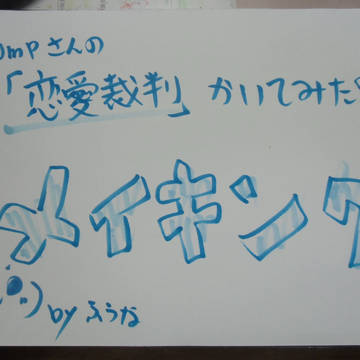 mPさんの
「恋愛裁判」かいてみた
メイキング
by ふうな